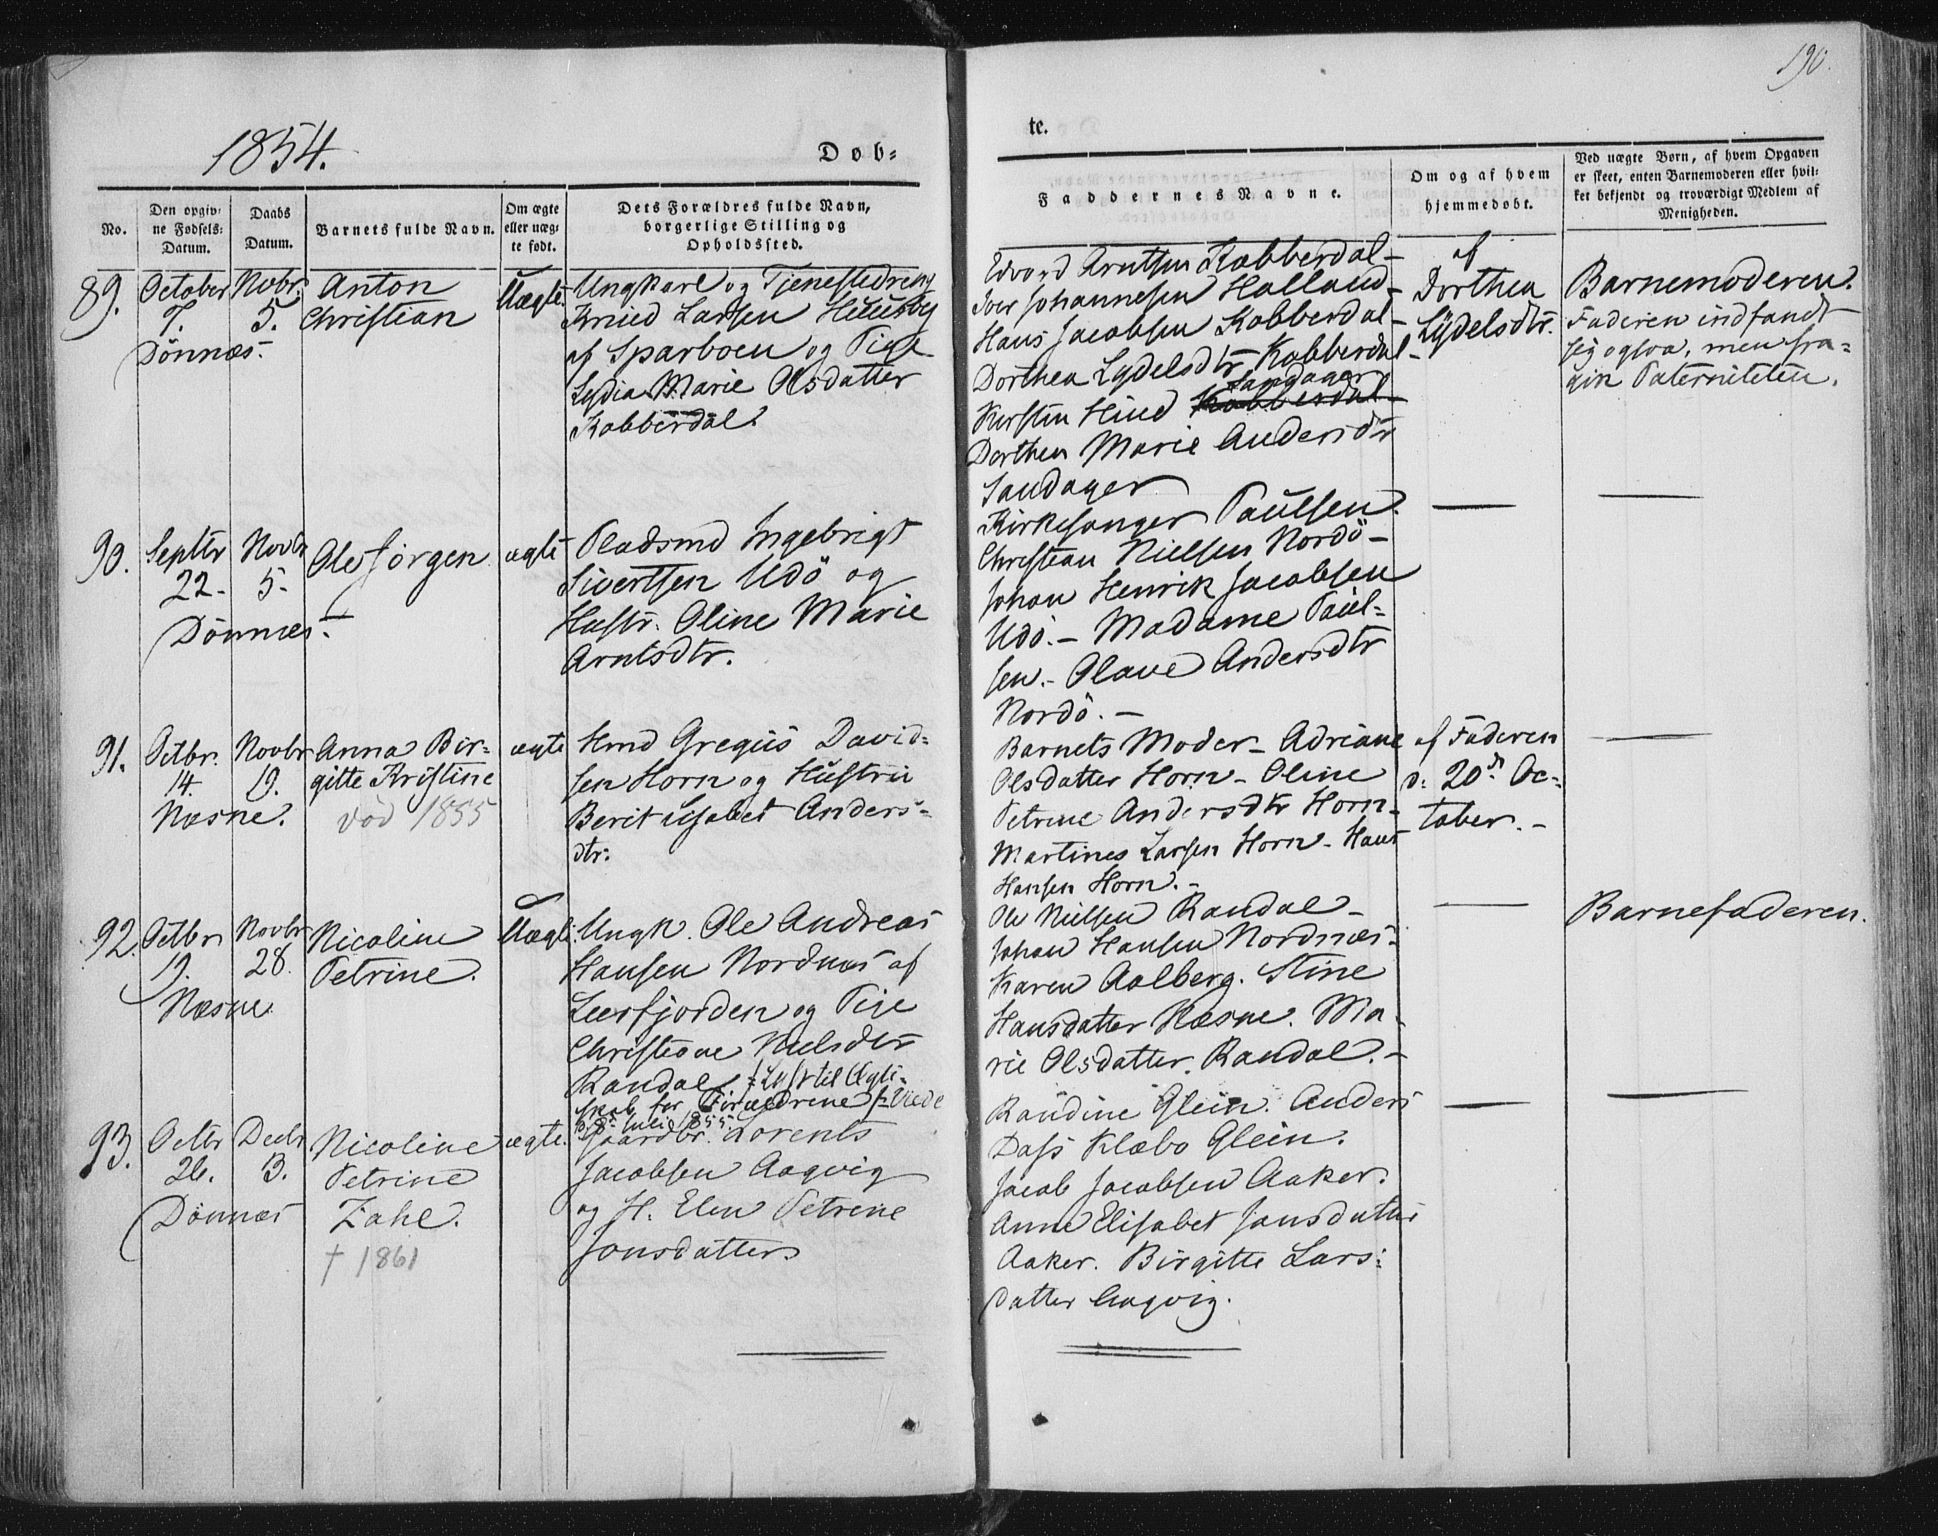 190.
1854.
Døb-
te.
No.
Den opgiv-
ne Fødsels-
Datum.
Daabs
Datum.
Barnets fulde Navn.
Om ægte
eller uæg-
te født.
Dets Forældres fulde Navn,
borgerlige Stilling og
Opholdssted.
Faddernes Navne.
Om og af hvem
hjemmedøbt.
Ved uægte Børn, af hvem Opgaven
er skeet, enten Barnemoderen eller hvil-
ket bekjendt og troværdigt Medlem af
Menigheden.
89.
October
7.
Dönnæs.
Novbr.
5.
Anton
Christian
Uægte.
Ungkarl og Tjenestedreng
Knud Larsen
af Sparboen og Pige
Lydia Marie Olsdatter
Kobberdal.
Edvard Arntsen Kobberdal-
Iver Johannesen Holland-
Hans Jacobsen Kobberdal-
Dorthea Lydelsdtr Kobberdal-
Sandager
Kirsten Hind Kobberdal-
Dorthea Marie Andersdtr
Sandager
af
Dorthea
Lydelsdtr.
Barnemoderen.
Faderen indfandt
sig ogsaa, men fra-
gik Paterniteten.
90.
Septbr
22-
Dönnæs.
Novbr
5-
Ole Jörgen
ægte
Pladsmd Ingebrigt
Sivertsen Udö og
Hustr. Oline Marie
Arntsdtr.
Kirkesanger Paulsen.
Christian Nielsen Nordö-
Johan Henrik Jacobsen
Udö.- Madame Paul-
sen.- Olave Andersdtr
Nordö.-
91.
Octbr.
14.
Næsne.
Novbr
19.
Anna Bir-
gitte Kristine
död 1855
ægte
Hmd Gregus David-
sen Horn og Hustru
Berit Lisabet Anders-
dtr.
Barnets Moder- Adriane
Olsdatter Horn- Oline
Petrine Andersdtr Horn-
Martines Larsen Horn- Hans
Hansen Horn.-
af Faderen
d: 20de Oc-
tober.-
92.
Octbr
19.
Næsne.
Novbr
28.
Nicoline
Petrine.
Uægte.
Ungk. Ole Andreas
Hansen Nordnæs af
Leerfjorden og Pige
Christiane Nielsdtr
Randal. (: Lyst til Ægte-
skab for Forældrene :) Viede
18de Juli 1855.
Ole Nielsen Randal-
Johan Hansen Nordnæs-
Karen Aalberg. Stine
Hansdatter Næsne. Ma-
rie Olsdatter Randal.-
Barnefaderen.
93.
Octbr
26.
Dönnæs
Decbr
3.
Nicoline
Petrine
Zahl.
† 1861
ægte.
Gaardbr. Lorents
Jacobsen Aagvig
og H. Elen Petrine
Jonsdatter
Randine Glein. Anders
Dass Klæbo Glein.
Jacob Jacobsen Aaker.
Anne Elisabet Jonsdatter
Aaker. Birgitte Lars-
datter Aagvig.